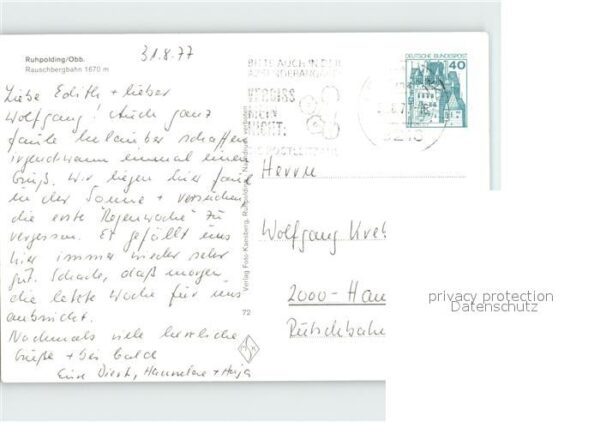 Ruhpolding/Obb.
Rauschbergbahn 1670 m
31.8.77
BITTE AUCH IN DER
ABSENDERANGABE
VERGISS
MEIN
NICHT:
DEUTSCHE BUNDESPOST
40
Liebe Edith + lieber
Wolfgang! Auch ganz
faule Urlauber schaffen
irgendwann einmal einen
Gruß. Wir liegen hier faul
in der Sonne + versuchen
die erste "Regenwoche" zu
vergessen. Es gefällt uns
hier immer wieder sehr
gut. Schade, daß morgen
die letzte Woche für uns
anbricht.
Nochmals viele herzliche
Grüße + bis bald
Eure Hannelore +
Verlag Foto-Kaesberg, Ruhpolding, Nachdruck verboten
72
Herrn
Wolfgang
2000-Ham
Rutschbahn
privacy protection
Datenschutz